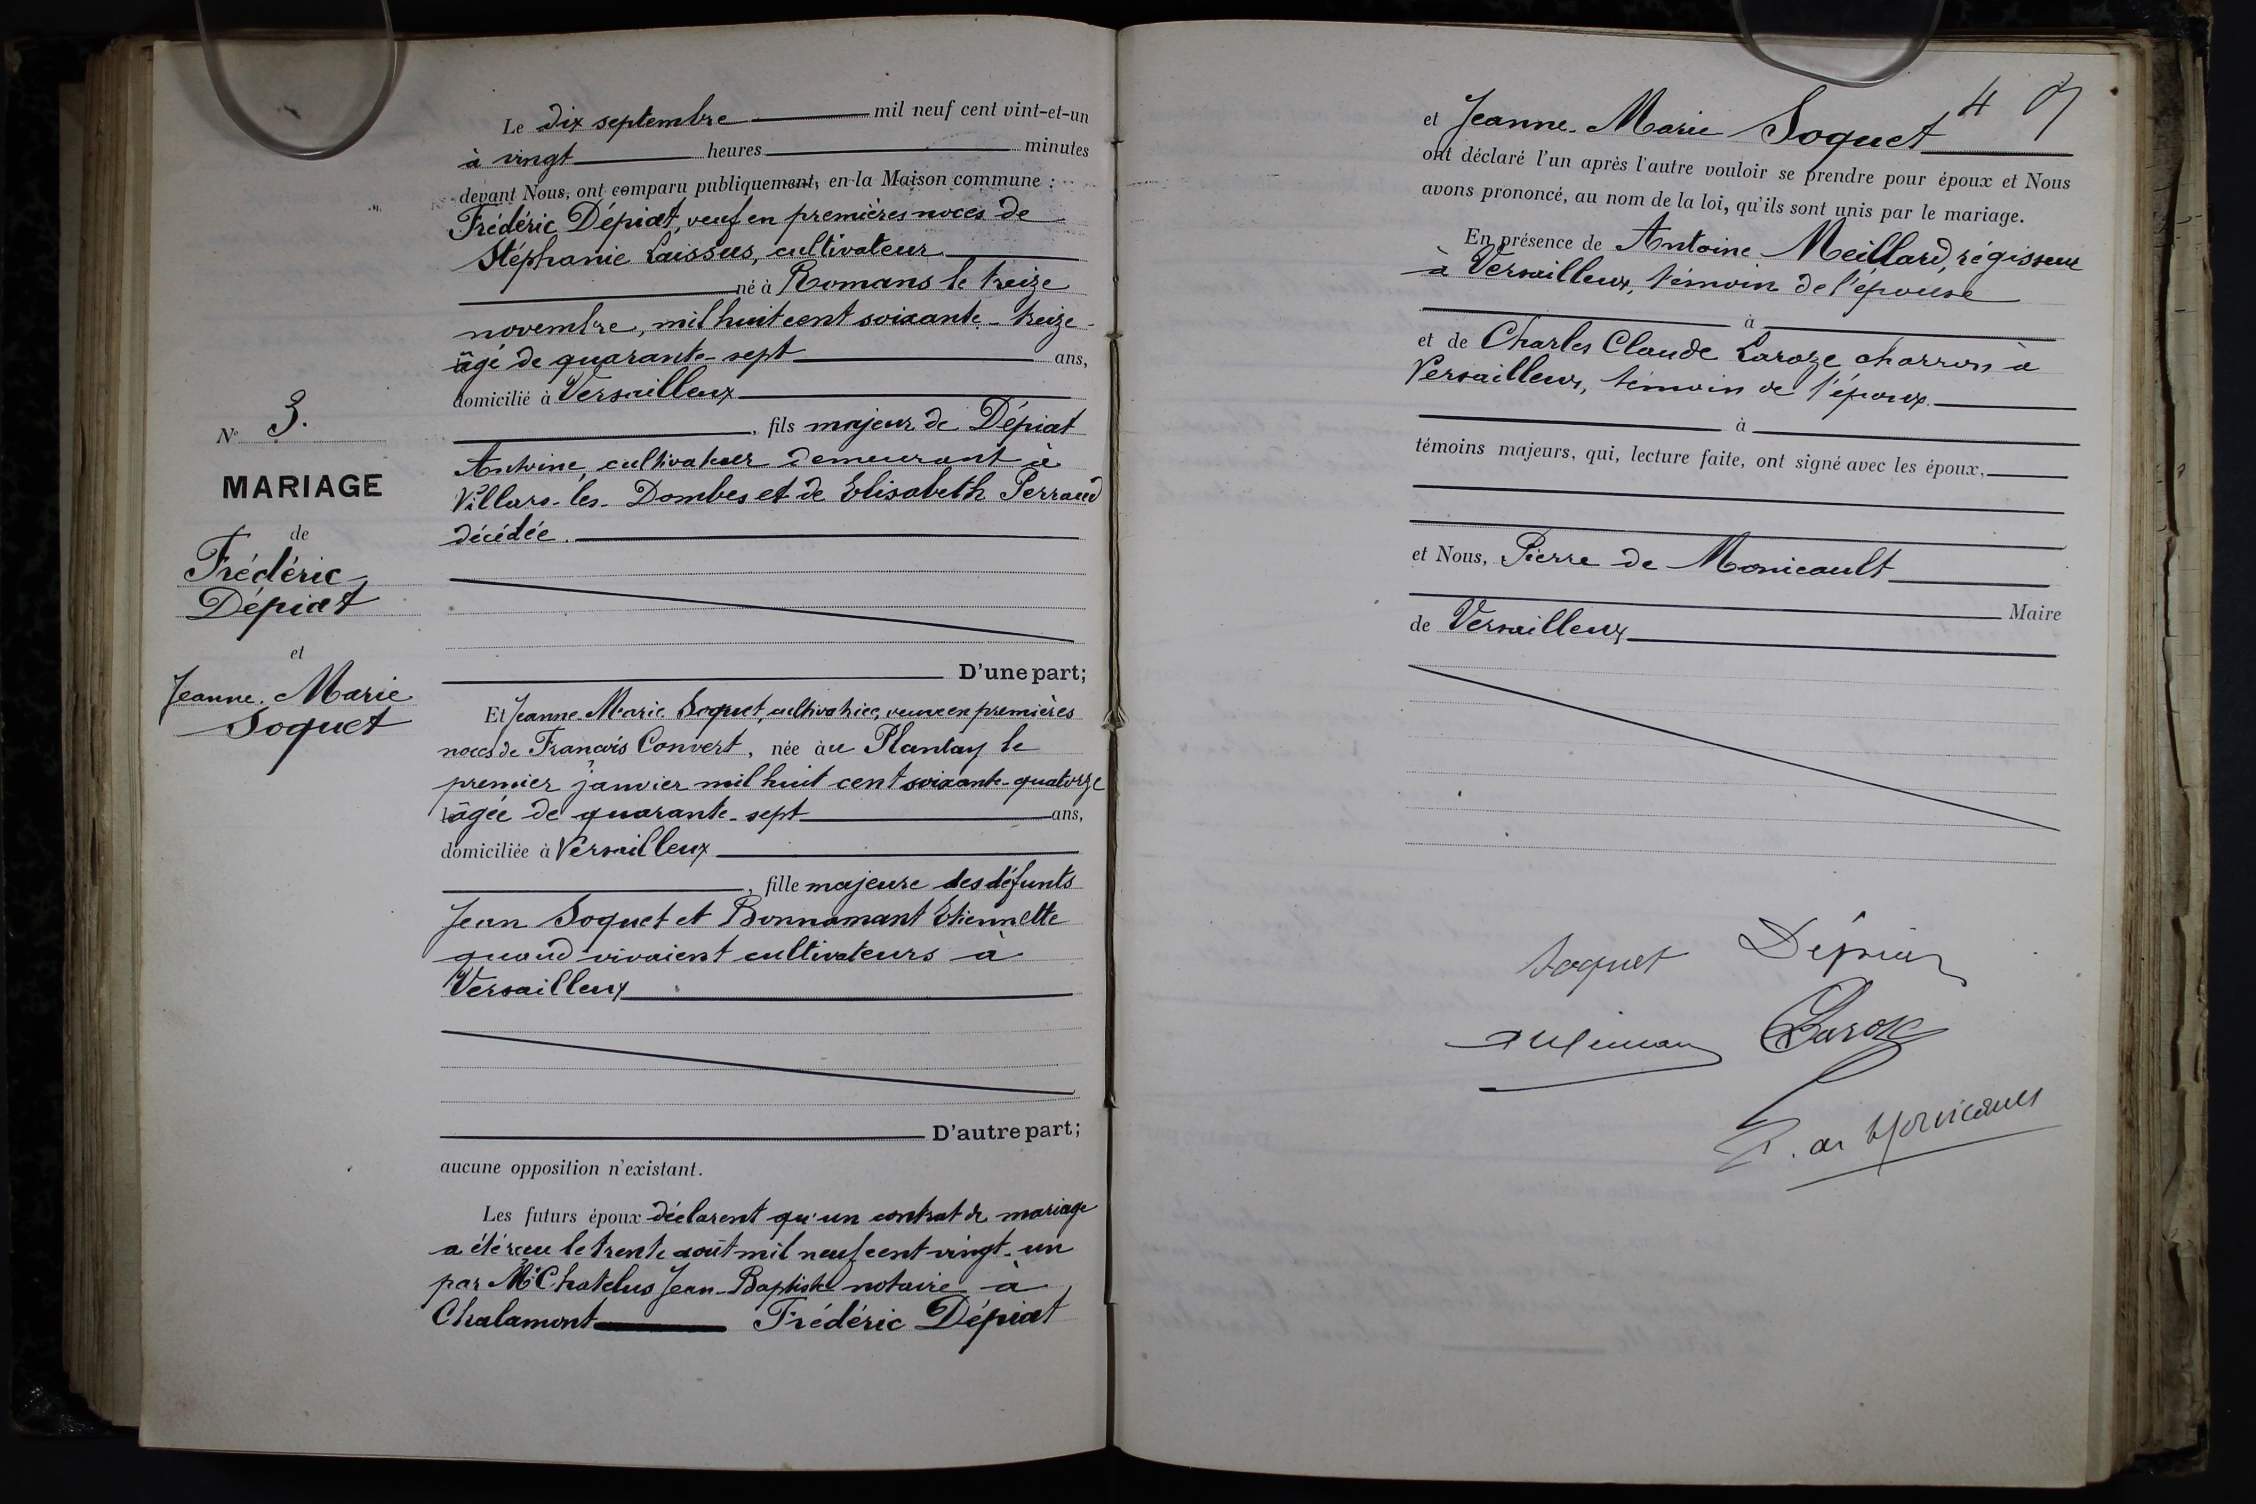 Le dix septembre mil neuf cent vint-et-un
à vingt heures minutes
devant Nous, ont comparu publiquement, en la Maison commune :
Frédéric Dépiat, veuf en premières noces de
Stéphanie Laissus, cultivateur
né à Romans le treize
novembre, mil huit cent soixante-treize
âgé de quarante-sept ans,
domicilié à Versailleux
, fils majeur de Dépiat
Antoine, cultivateur demeurant à
Villars-les-Dombes et de Elisabeth Perraud
décédée.
D'une part;
Et Jeanne Marie Soquet, cultivatrice, veuve en premières
noces de François Convert, née àu Plantay le
premier janvier mil huit cent soixante-quatorze
âgée de quarante-sept ans,
domiciliée à Versailleux
, fille majeure des défunts
Jean Soquet et Bonnamant Etiennette
quand vivaient cultivateurs à
Versailleux
D'autre part;
aucune opposition n'existant.
Les futurs époux déclarent qu'un contrat de mariage
a été reçu le trente août mil neuf cent vingt-un
par Me Chatelus Jean-Baptiste notaire à
Chalamont Frédéric Dépiat
No 3.
MARIAGE
de
Frédéric
Dépiat
et
Jeanne-Marie
Soquet
4
et Jeanne-Marie Soquet
ont déclaré l'un après l'autre vouloir se prendre pour époux et Nous
avons prononcé, au nom de la loi, qu'ils sont unis par le mariage.
En présence de Antoine Meillard, régisseur
à Versailleux, témoin de l'épouse
à
et de Charles Claude Laroze charron à
Versailleux, témoin de l'époux.
à
témoins majeurs, qui, lecture faite, ont signé avec les époux,
et Nous, Pierre de Monicault
Maire
de Versailleux
Soquet Dépiat
Laroze
P. de Monicault